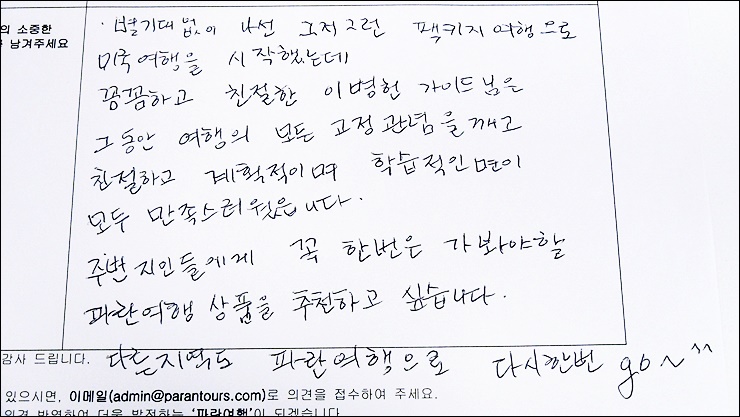 의 소중한
남겨주세요
· 별기대 없이 나선 그저그런 팩키지여행으로
미국여행을 시작했는데
꼼꼼하고 친절한 이병헌 가이드님은
그동안 여행의 모든 고정관념을 깨고
친절하고 계획적이며 학습적인면이
모두 만족스러웠읍니다.
주변지인들에게 꼭 한번은 가봐야할
파란여행 상품을 추천하고 싶습니다.
감사 드립니다. 다른지역도 파란여행으로 다시한번 go~^^
있으시면, 이메일(admin@parantours.com)로 의견을 접수하여 주세요.
의견 반영하여 더욱 발전하는 '파란여행'이 되겠습니다.